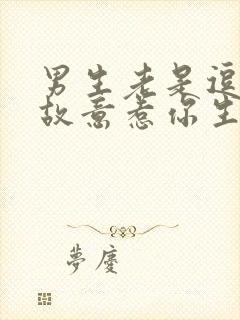 男生老是逗
故意惹你生
夢廔